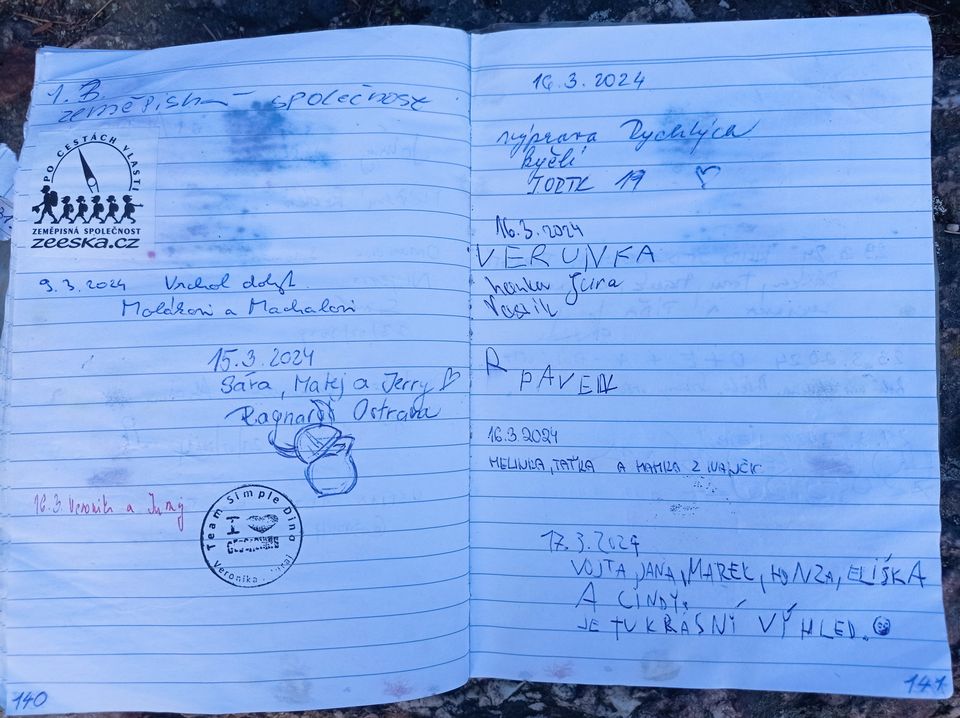 1.B
zeměpisná společnost
PO CESTÁCH VLASTI
ZEMĚPISNÁ SPOLEČNOST
zeeska.cz
9.3.2024 Vrchol dobyt
Molákovi a Machalovi
15.3.2024
Sára, Matej a Jerry
Ragnar Ostrava
16.3. Veronik a Juraj
Team Simple Dino
I
Veronika
140
16.3.2024
výprava Rychlých
19
16.3.2024
VERUNKA
hanka Jura
Vašík
R
PAVEL
16.3.2024
MELINKA, TAŤKA A MAMKA Z IVANČIC
17.3.2024
VOJTA, JANA, MAREK, HONZA, ELIŠKA
A CINDY.
JE TU KRÁSNÍ VÝHLED.
141